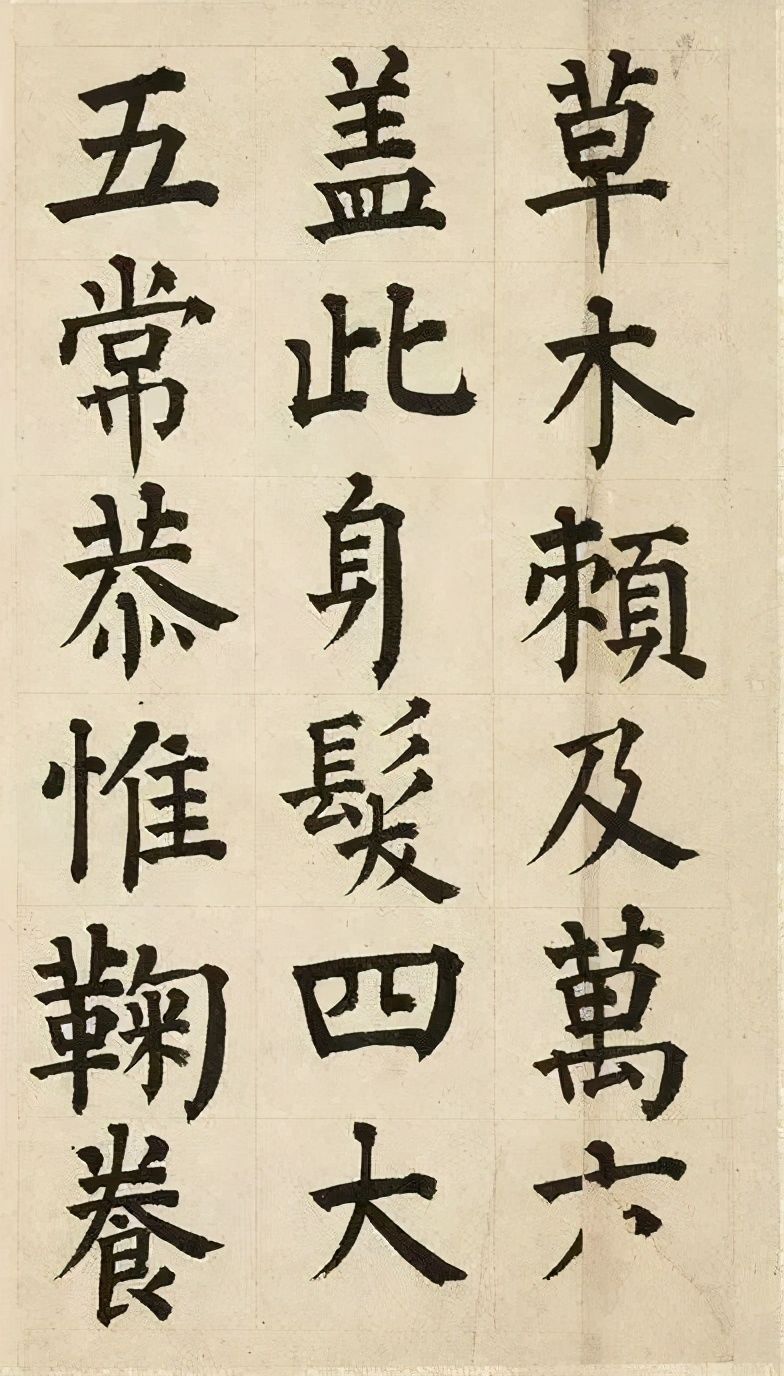 草木頼及萬六
盖此身髮四大
五常恭惟鞠養